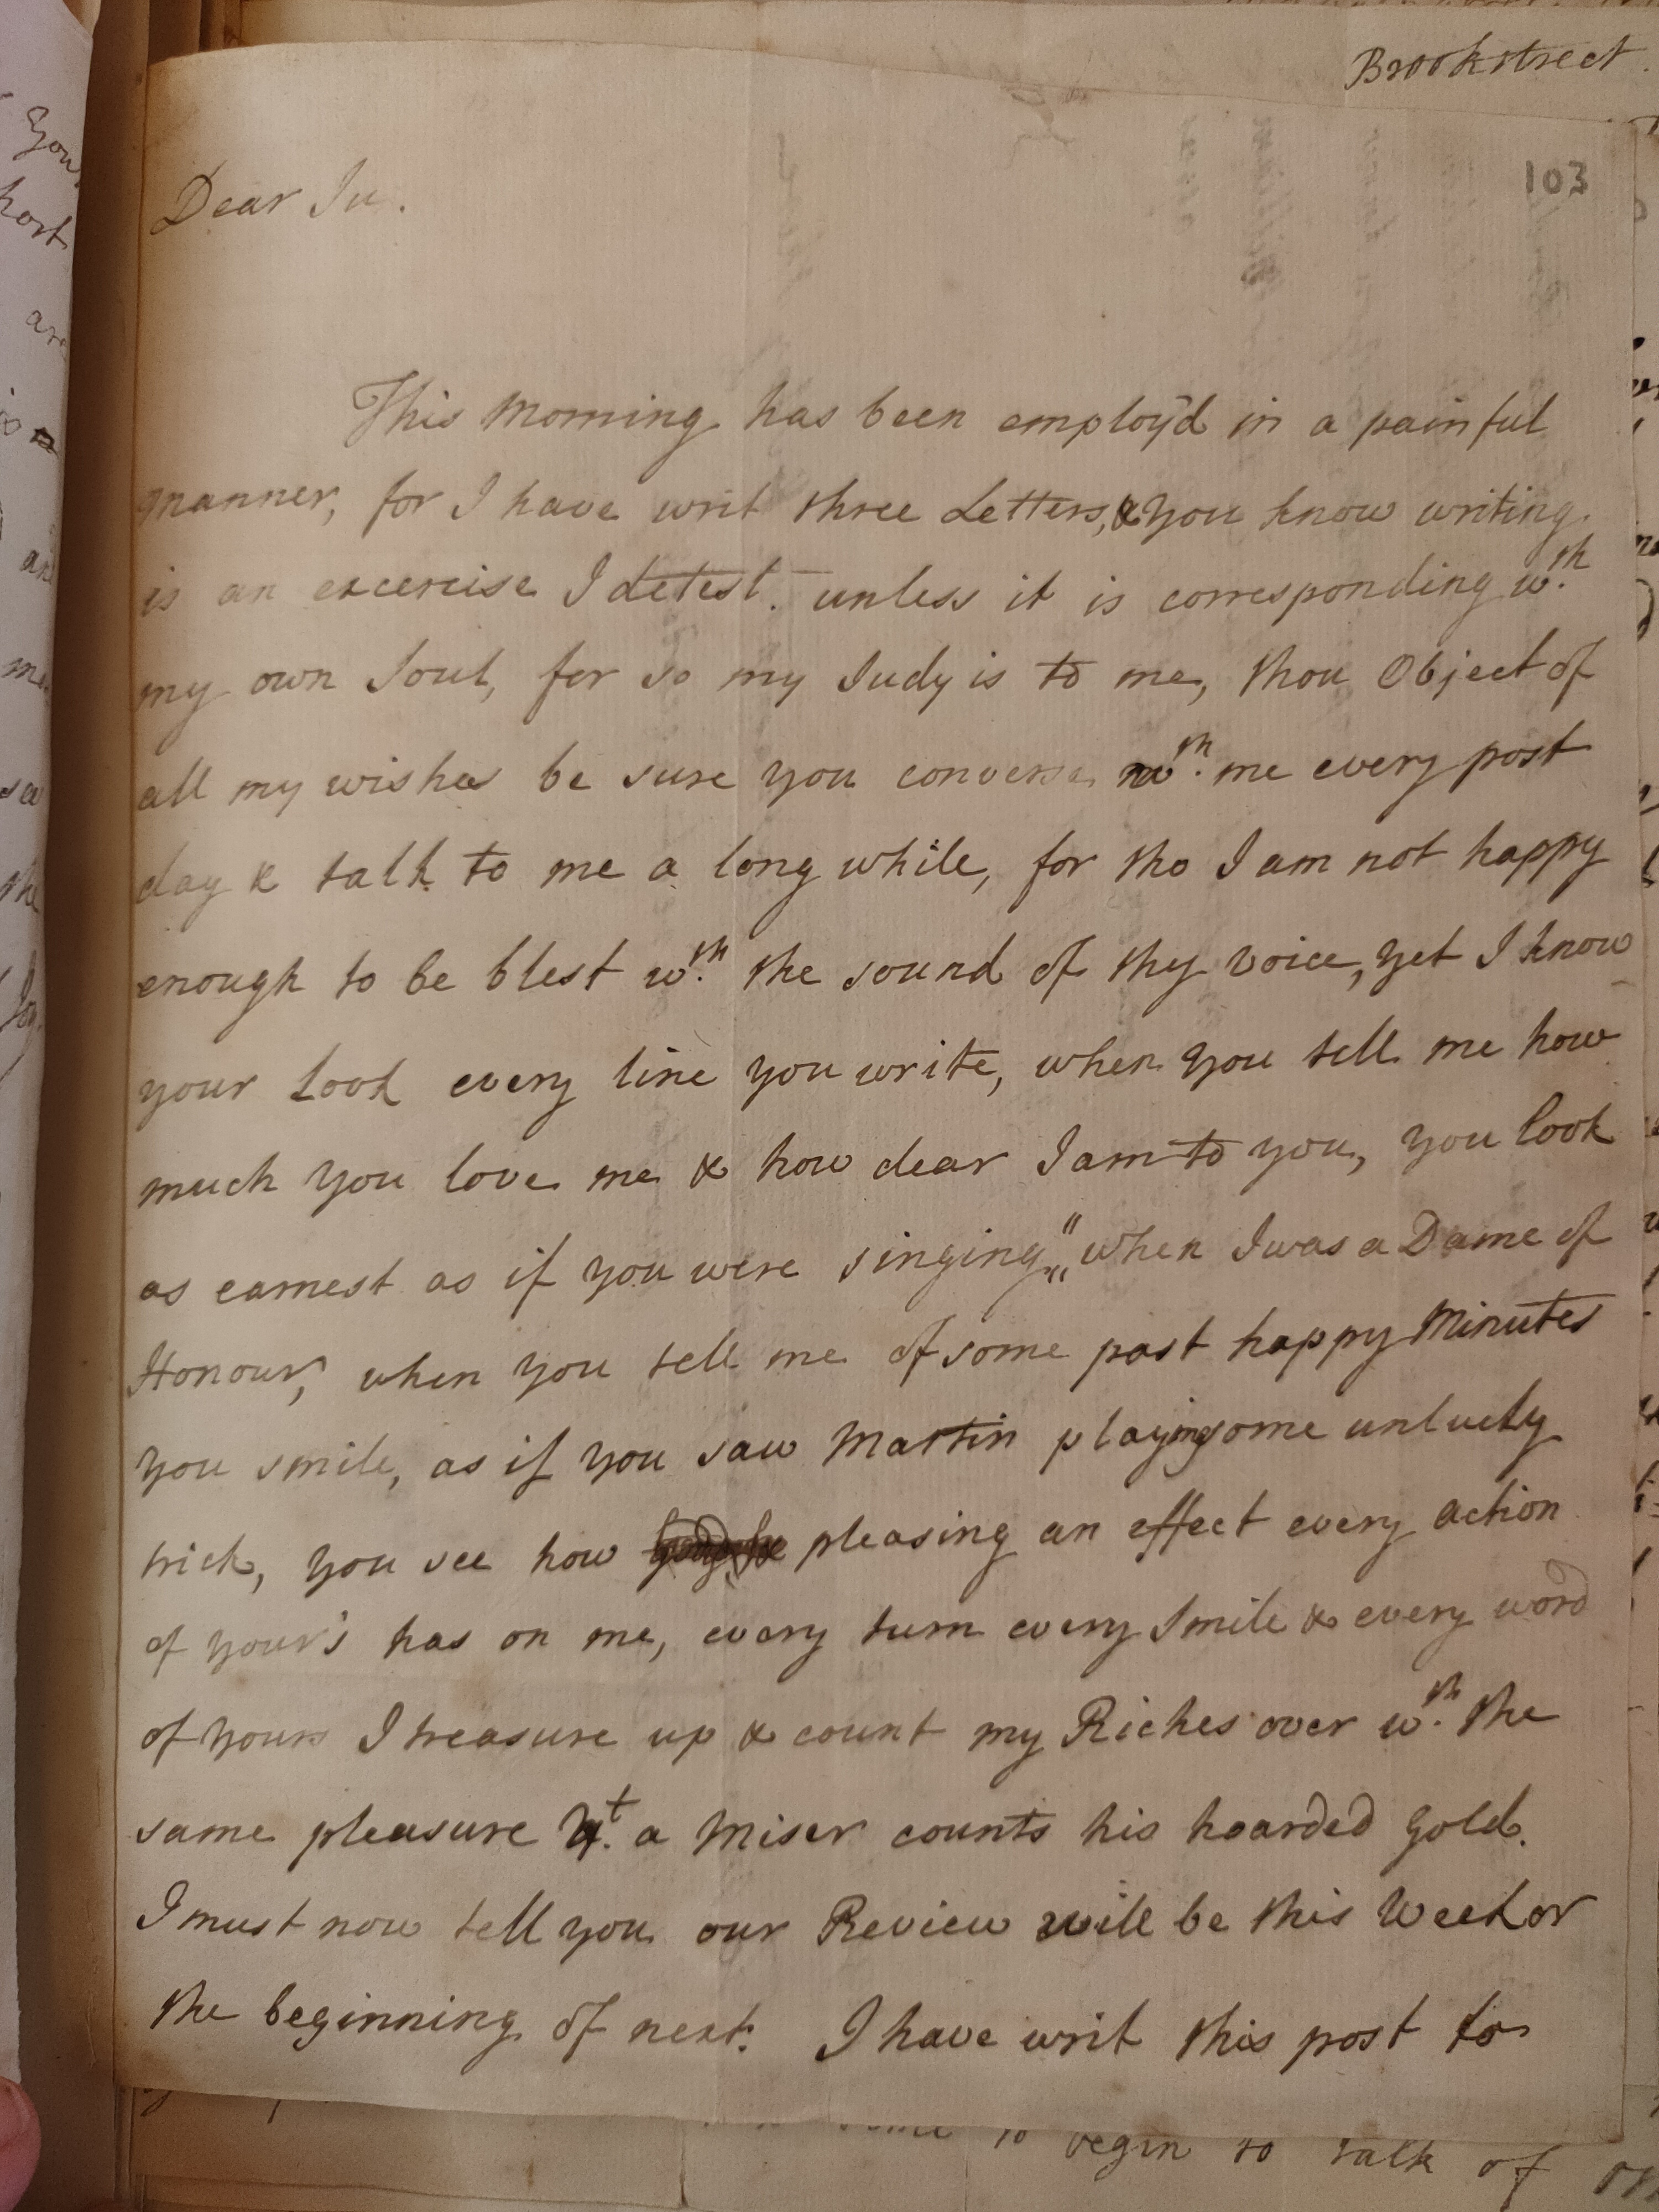 Brookstreet.
103
Dear Ju.
This Morning has been employ'd in a painful
manner, for I have writ three Letters, & you know writing
is an excercise I detest. unless it is corresponding w.th
my own Soul, for so my Judy is to me, thou Object of
all my wishes be sure you converse w.th me every post
day & talk to me a long while, for tho I am not happy
enough to be blest w.th the sound of thy voice, yet I know
your Look every line you write, when you tell me how
much you love me & how dear I am to you, you look
as earnest as if you were singing, "when I was a Dame of
Honour," when you tell me of some past happy Minutes
you smile, as if you saw Martin playing some unlucky
trick, you see how pleasing an effect every action
of your's has on me, every turn every Smile & every word
of yours I treasure up & count my Riches over w.th the
same pleasure y.t a Miser counts his hoarded Gold.
I must now tell you our Review will be this Week or
the beginning of next. I have writ this post to
begin to talk of